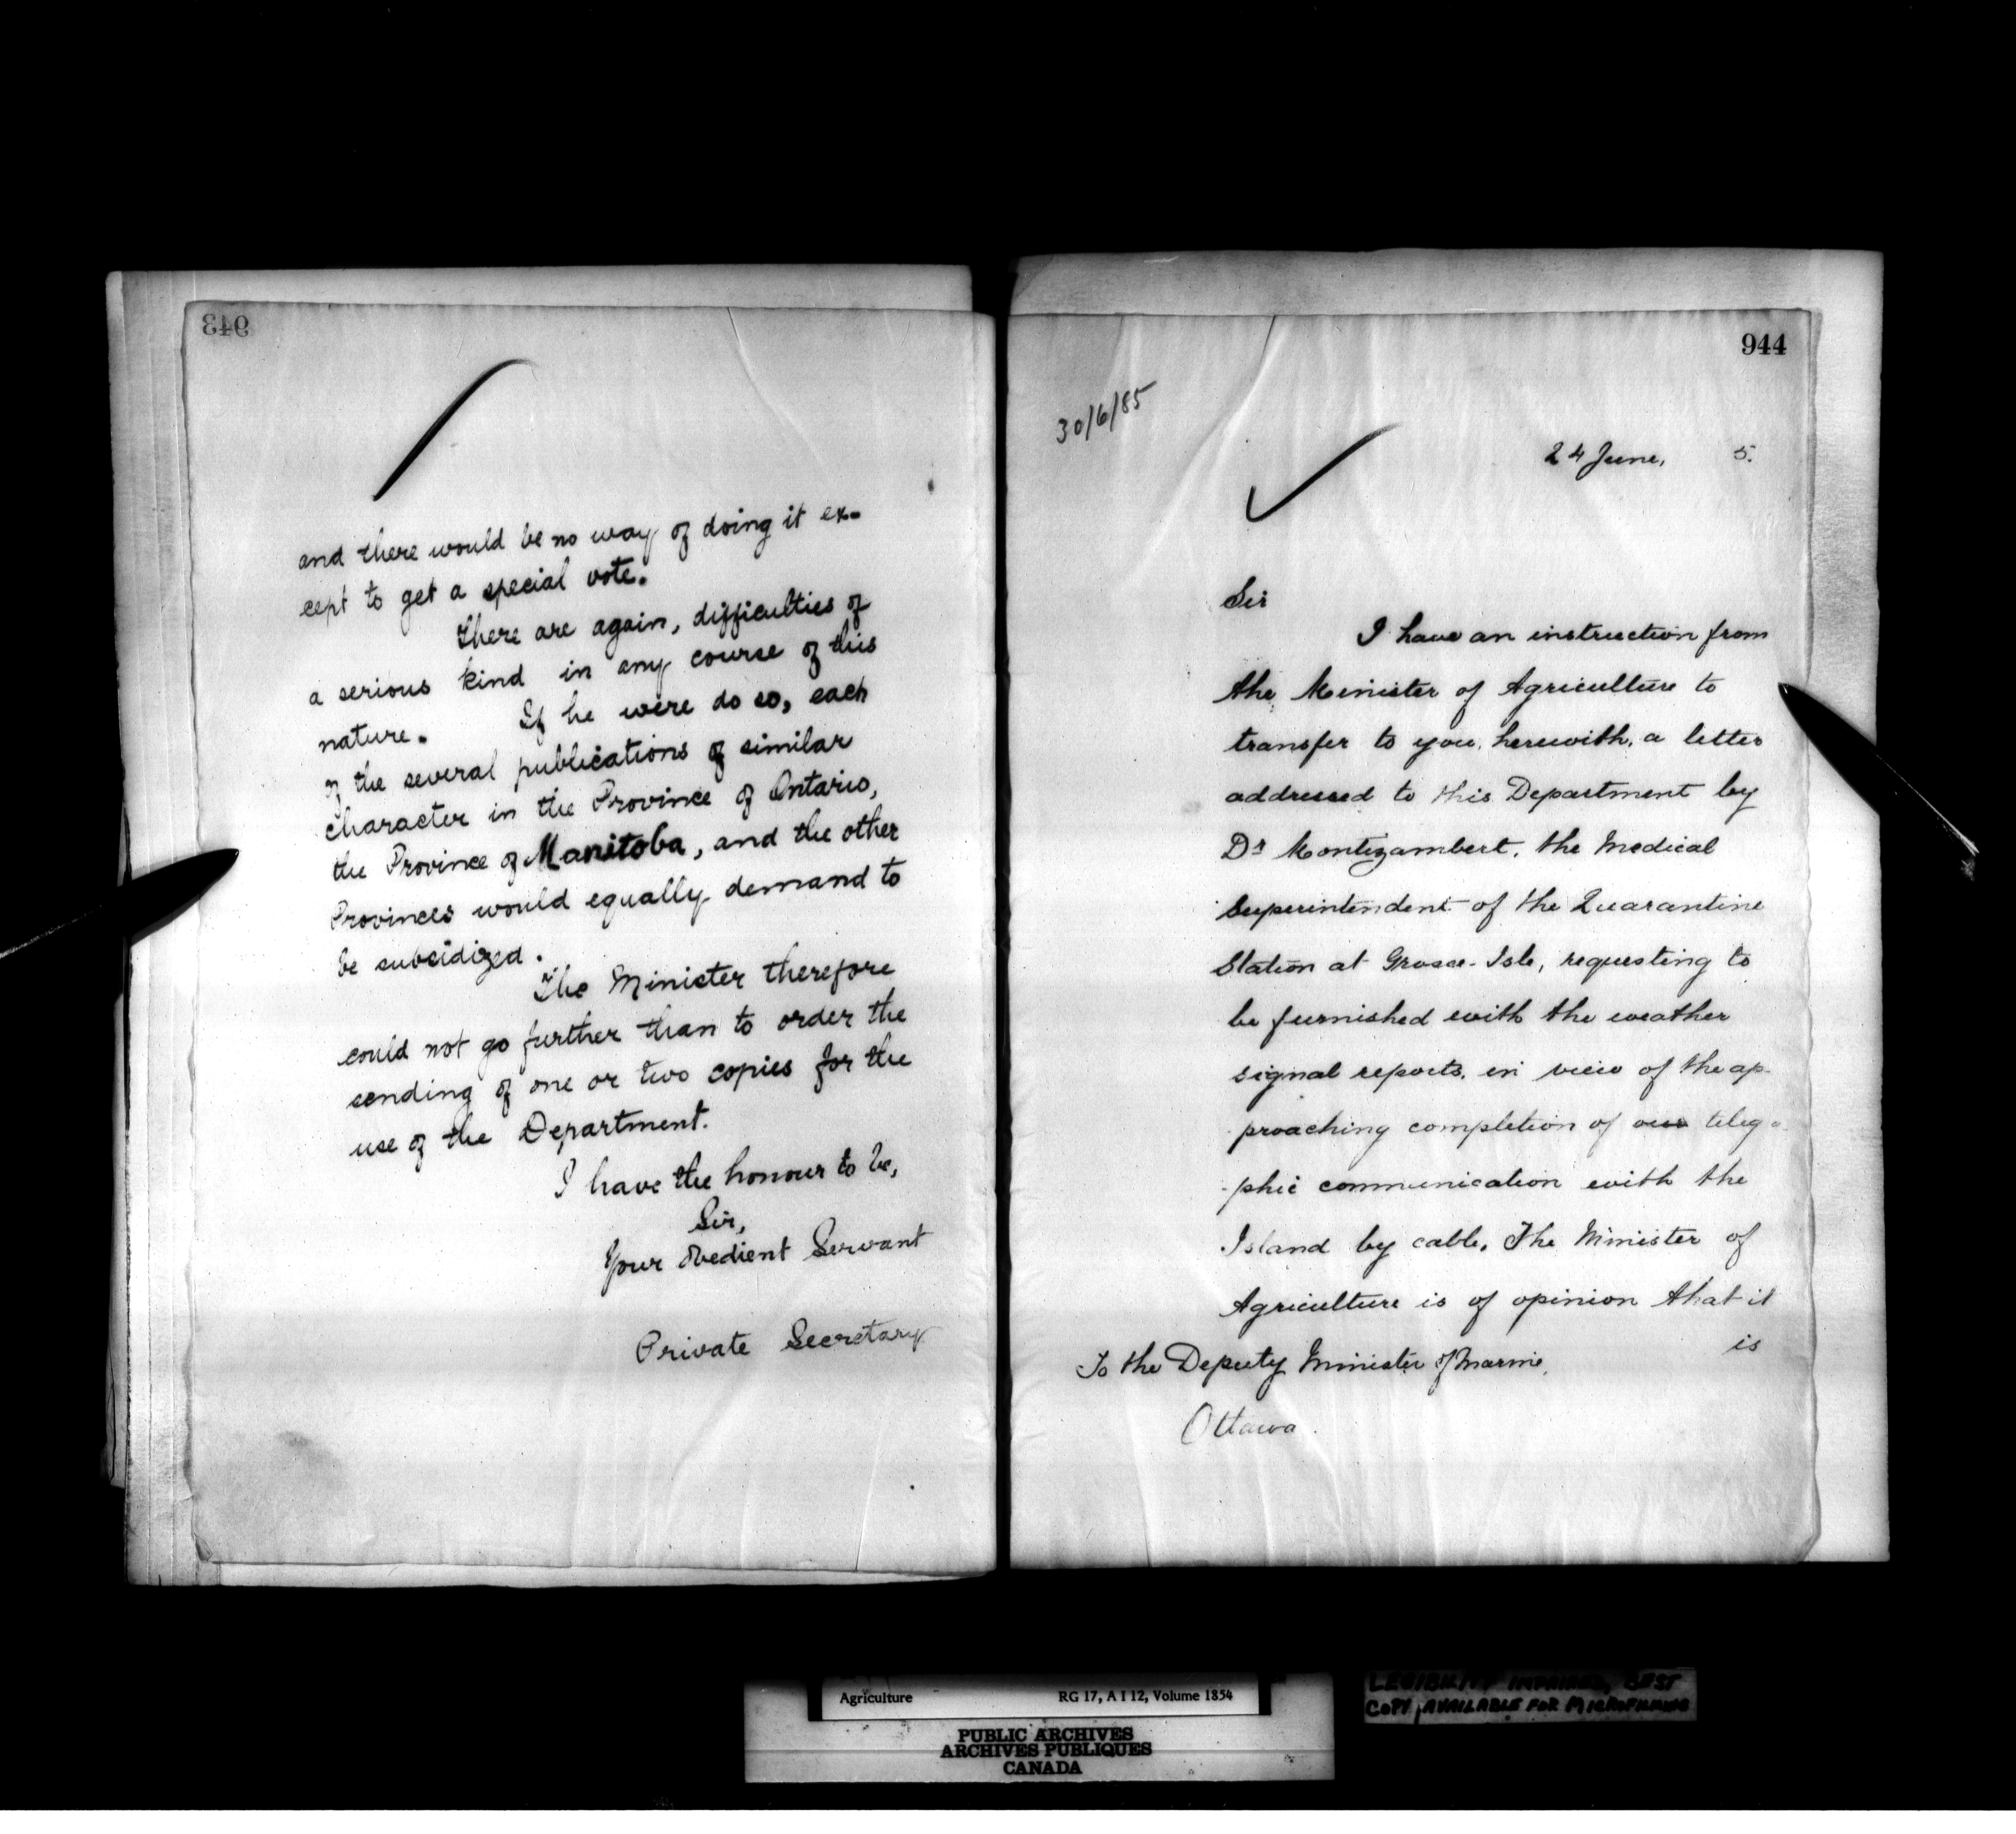 943
and there would be no way of doing it ex-
cept to get a special vote.
There are again, difficulties of
a serious kind in any course of this
nature. If he were do so, each
of the several publications of similar
character in the Province of Ontario,
the Province of Manitoba, and the other
Provinces would equally demand to
be subsidized.
The Minister therefore
could not go further than to order the
sending of one or two copies for the
use of the Department.
I have the honour to be,
Sir,
Your Obedient Servant
Private Secretary
944
30/6/85
24 June, 5.
Sir
I have an instruction from
the Minister of Agriculture to
transfer to you, herewith, a letter
addressed to this Department by
Dr Montizambert, the Medical
Superintendent of the Quarantine
Station at Grosse-Isle, requesting to
be furnished with the weather
signal reports, in view of the ap-
proaching completion of our teleg
-phic communication with the
Island by cable. The Minister of
Agriculture is of opinion that it
is
To the Deputy Minister of Marine,
Ottawa.
Agriculture RG 17, A I 12, Volume 1854
PUBLIC ARCHIVES
ARCHIVES PUBLIQUES
CANADA
LEGIBILITY IMPAIRED, BEST
COPY AVAILABLE FOR MICROFILMING